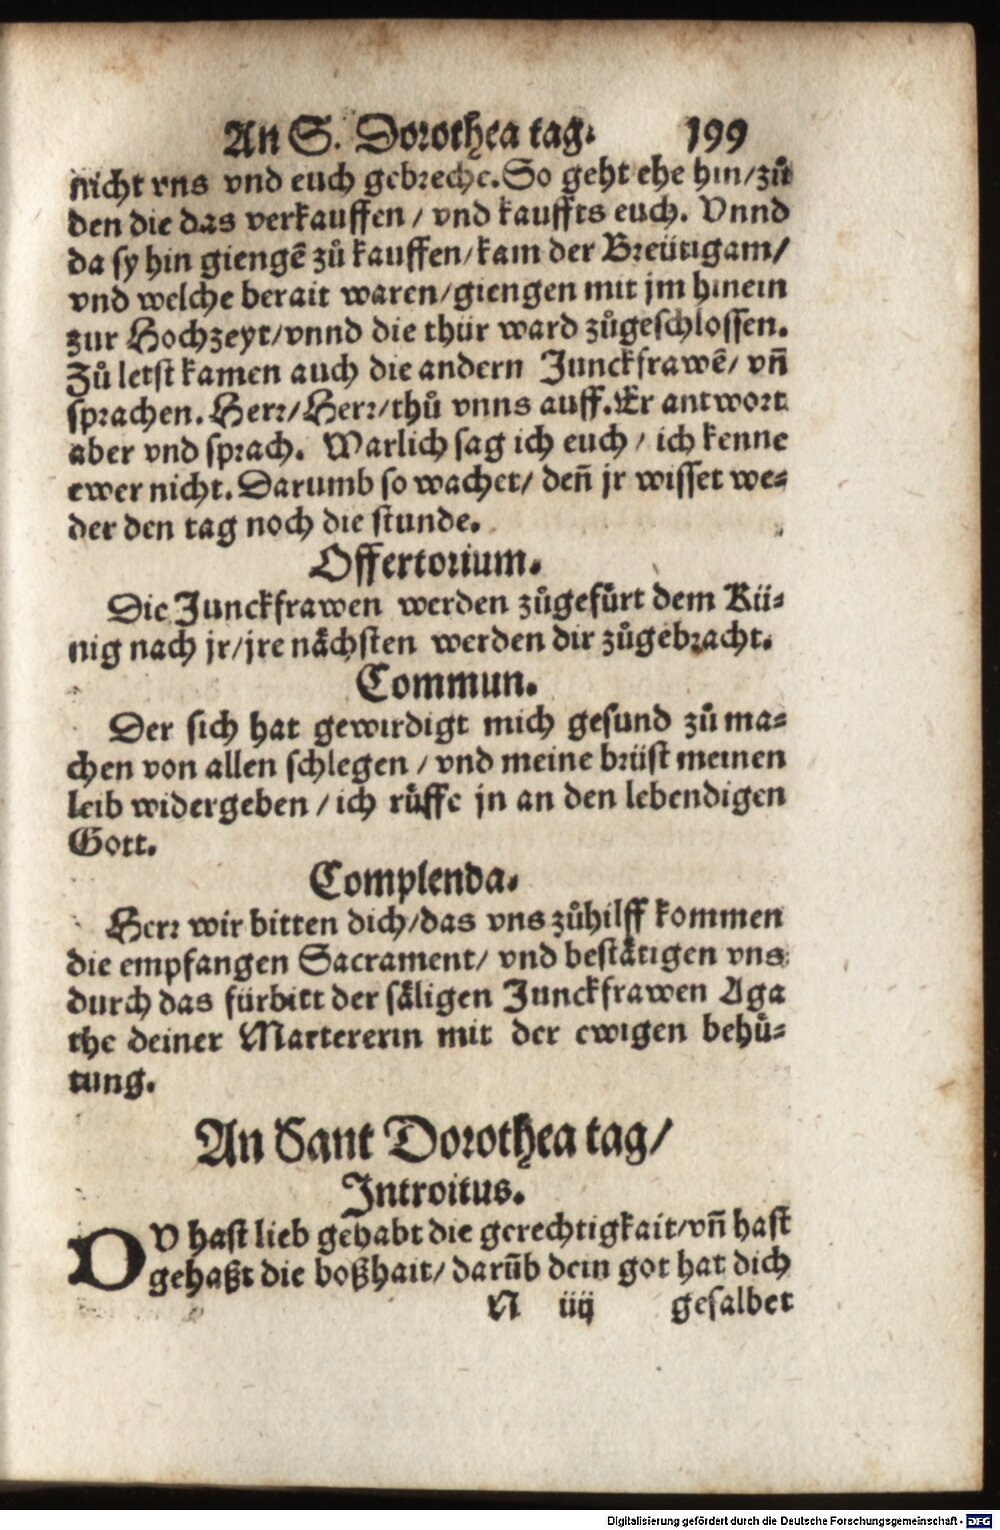 An S. Dorothea tag. 199
nicht vns vnd euch gebreche. So geht ehe hin/zů
den die das verkauffen / vnd kauffts euch. Vnnd
da sy hin giengē zů kauffen/kam der Breütigam/
vnd welche berait waren/giengen mit jm hinein
zur Hochzeyt/vnnd die thür ward zůgeschlossen.
Zů letst kamen auch die andern Junckfrawē/ vn̄
sprachen. Herr/Herr/thů vnns auff. Er antwort
aber vnd sprach. Warlich sag ich euch / ich kenne
ewer nicht. Darumb so wachet/ den̄ jr wisset we⸗
der den tag noch die stunde.
Offertorium.
Die Junckfrawen werden zůgefürt dem Kü⸗
nig nach jr/jre nächsten werden dir zůgebracht.
Commun.
Der sich hat gewirdigt mich gesund zů ma⸗
chen von allen schlegen / vnd meine brüst meinen
leib widergeben / ich růffe jn an den lebendigen
Gott.
Complenda.
Herr wir bitten dich/das vns zůhilff kommen
die empfangen Sacrament/ vnd bestätigen vns
durch das fürbitt der säligen Junckfrawen Aga
the deiner Martererin mit der ewigen behů⸗
tung.
An Sant Dorothea tag/
Introitus.
DV hast lieb gehabt die gerechtigkait/vn̄ hast
gehaßt die boßhait/ darūb dein got hat dich
N iiij gesalbet
Digitalisierung gefördert durch die Deutsche Forschungsgemeinschaft - DFG